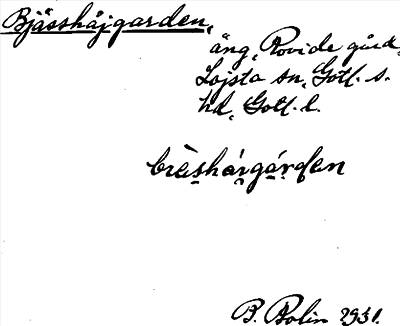 Bjässhåj-garden,
äng, Rovide gård,
Lojsta sn, Gotl. s.
hd, Gotl. l.
brèshárgárden
B. Bolin 1931.